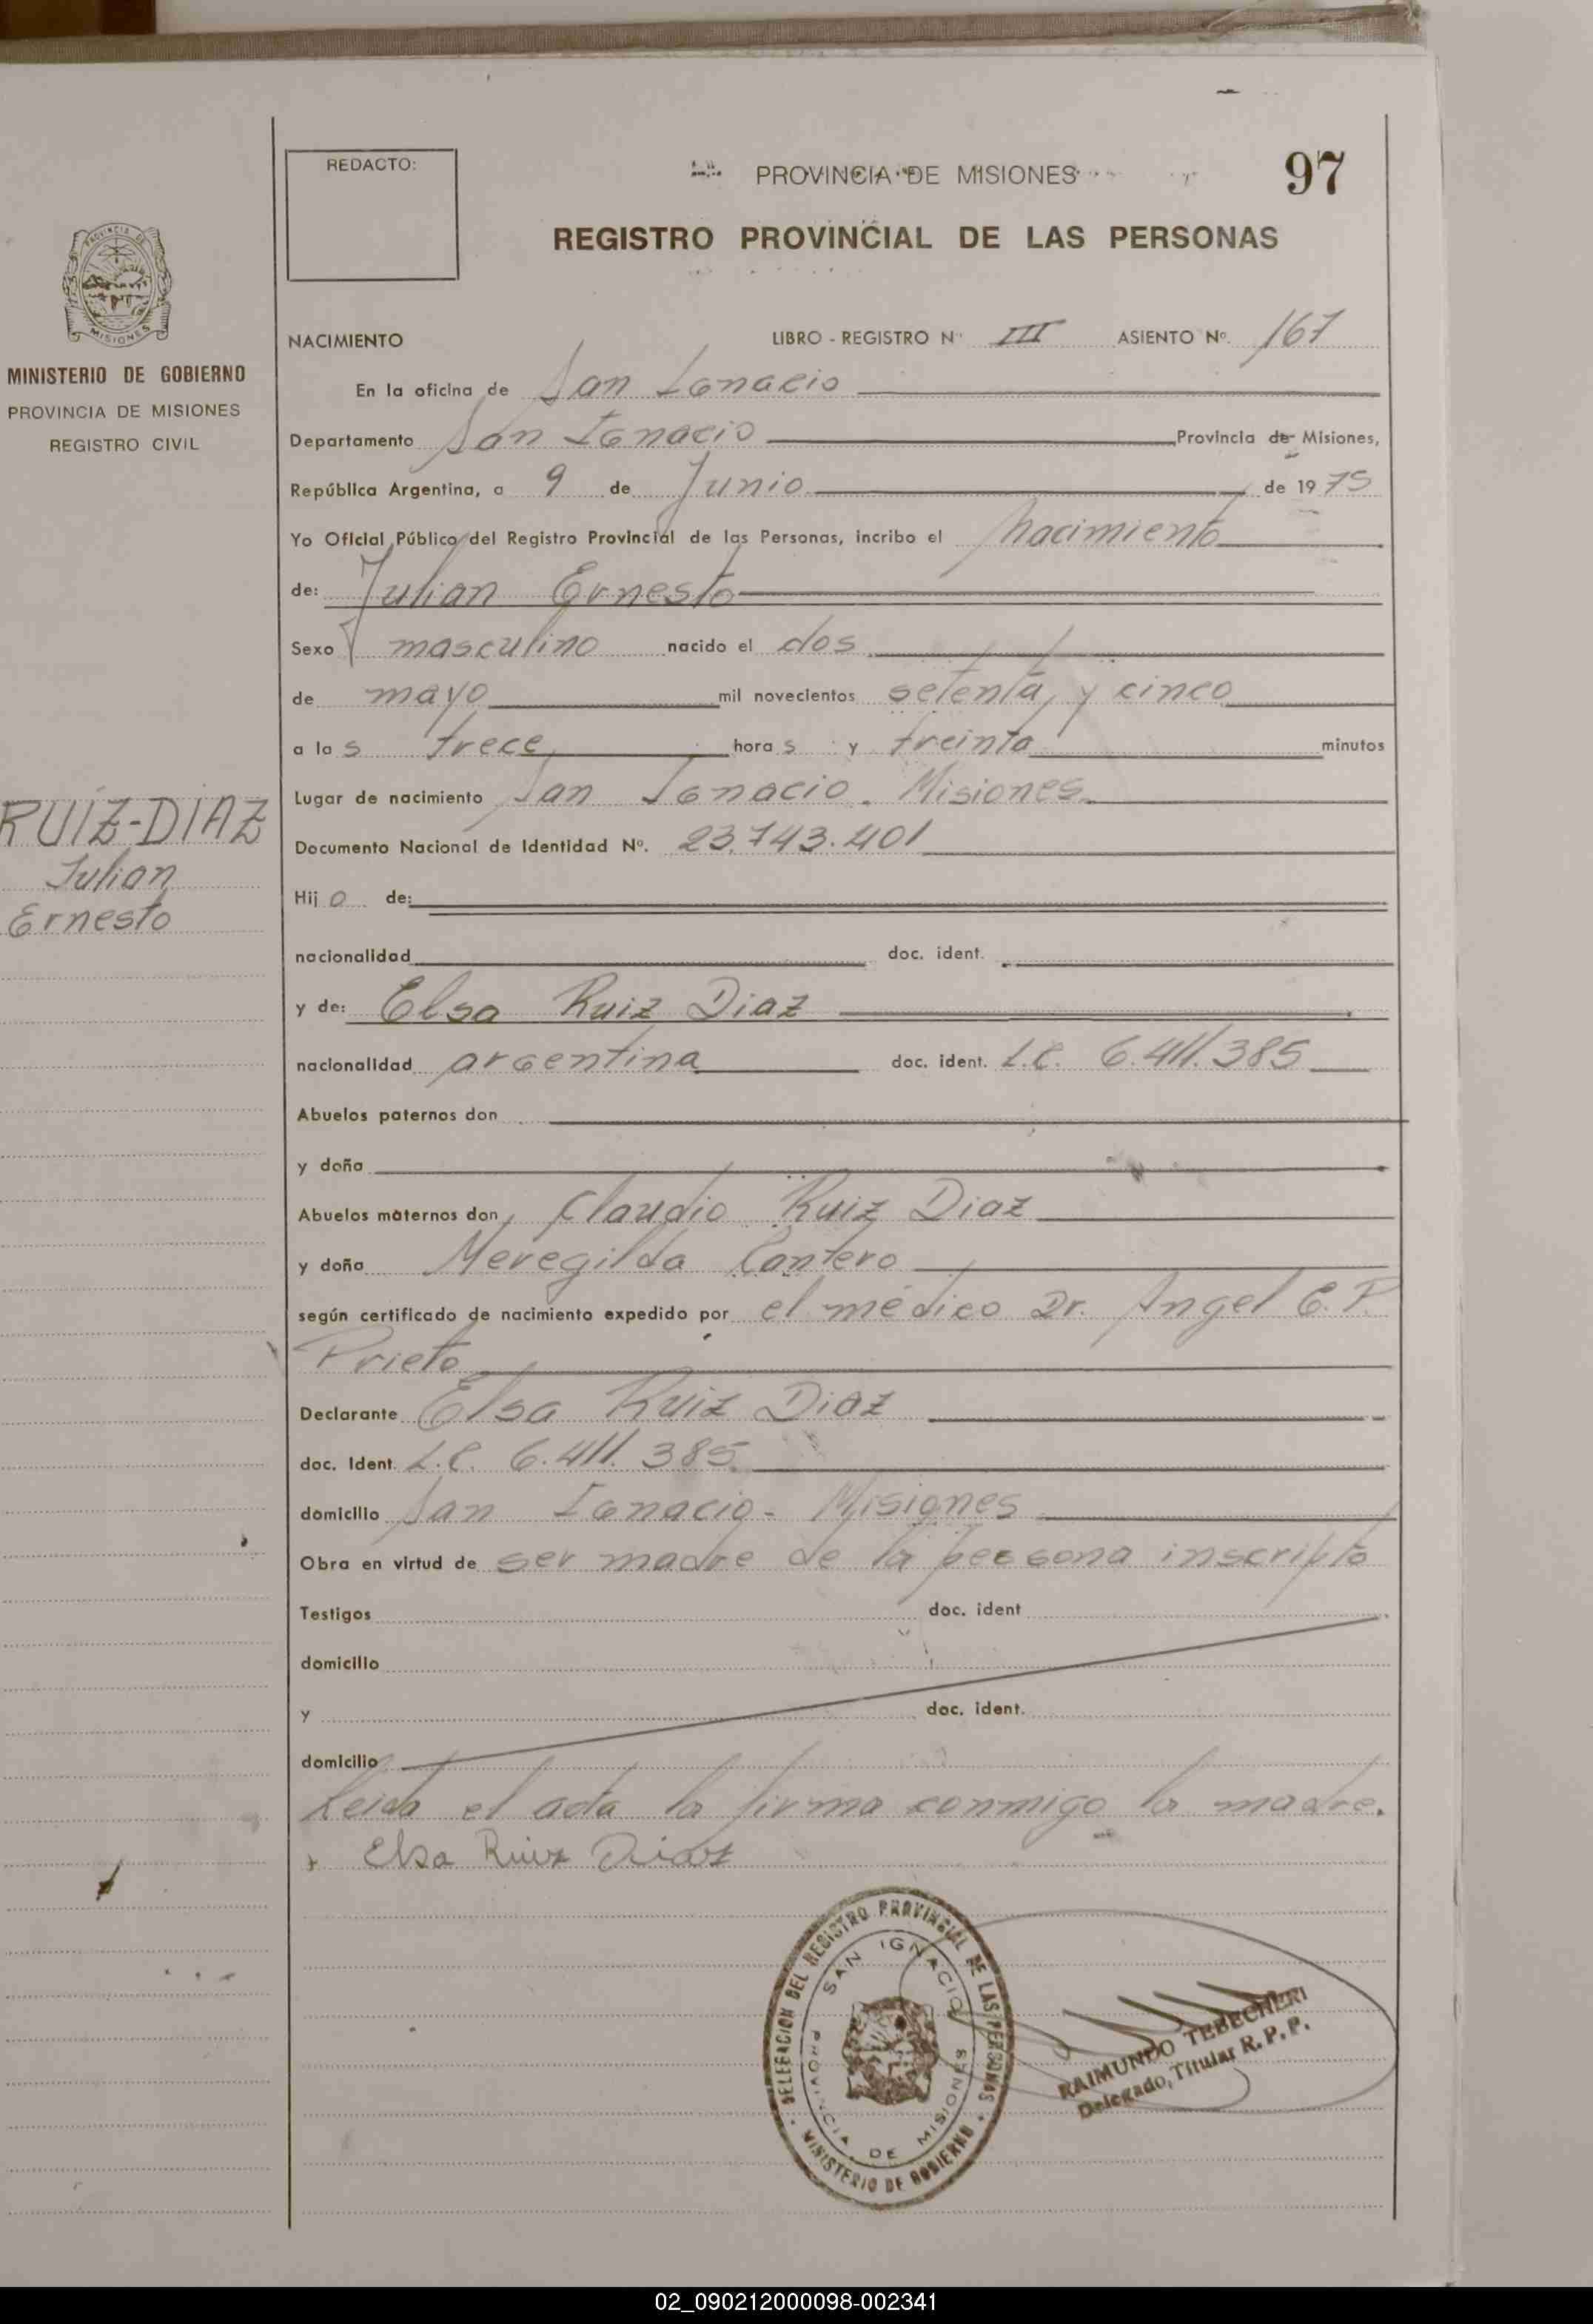 REDACTO:
PROVINCIA DE MISIONES
97
REGISTRO PROVINCIAL DE LAS PERSONAS
PROVINCIA DE MISIONES
MINISTERIO DE GOBIERNO
PROVINCIA DE MISIONES
REGISTRO CIVIL
RUIZ-DIAZ
Julian
Ernesto
NACIMIENTO LIBRO - REGISTRO Nº III ASIENTO Nº. 167
En la oficina de San Ignacio
Departamento San Ignacio Provincia de Misiones,
República Argentina, a 9 de Junio de 1975
Yo Oficial Público del Registro Provincial de las Personas, incribo el nacimiento
de: Julian Ernesto
Sexo masculino nacido el dos
de mayo mil novecientos setenta y cinco
a las trece horas y treinta minutos
Lugar de nacimiento San Ignacio. Misiones
Documento Nacional de Identidad Nº. 23.743.401
Hijo de:
nacionalidad doc. ident.
y de: Elsa Ruiz Diaz
nacionalidad argentina doc. ident. L.C. 6.411.385
Abuelos paternos don
y doña
Abuelos maternos don Claudio Ruiz Diaz
y doña Meregilda Cantero
según certificado de nacimiento expedido por el médico Dr. Angel C. P.
Prieto
Declarante Elsa Ruiz Diaz
doc. Ident. L.C. 6.411.385
domicilio San Ignacio - Misiones
Obra en virtud de ser madre de la persona inscripta
Testigos doc. ident
domicilio
y doc. ident.
domicilio
Leida el acta la firma conmigo la madre.
Elsa Ruiz Diaz
DELEGACION DEL REGISTRO PROVINCIAL DE LAS PERSONAS
SAN IGNACIO
PROVINCIA DE MISIONES
MINISTERIO DE GOBIERNO
RAIMUNDO TEBECHERI
Delegado, Titular R. P. P.
02_090212000098-002341